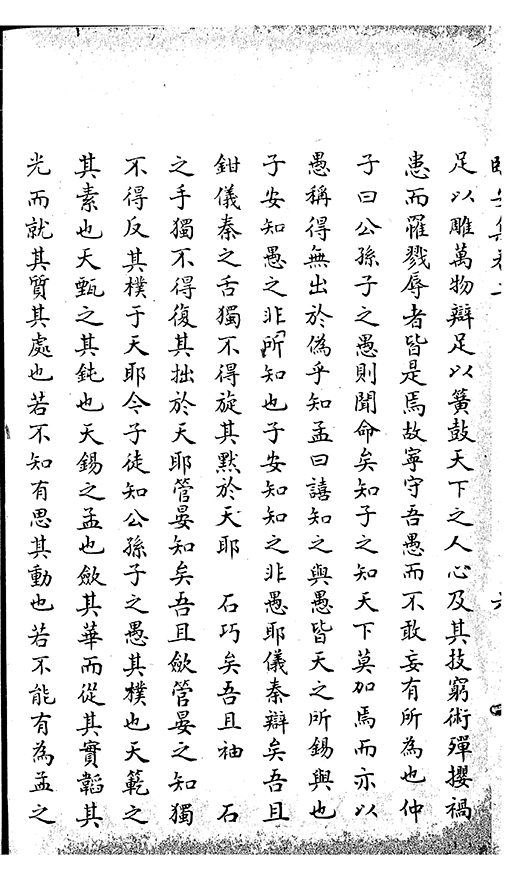 足以雕萬物辯足以簧鼓天下之人心及其技窮術殫攖禍
患而罹戮辱者皆是焉故寧守吾愚而不敢妄有所為也仲
子曰公孫子之愚則聞命矣知子之知天下莫加焉而亦以
愚稱得無出於偽乎知孟曰譆知之與愚皆天之所錫與也
子安知愚之非所知也子安知知之非愚耶儀秦辯矣吾且
鉗儀秦之舌獨不得旋其默於天耶　石巧矣吾且袖　石
之手獨不得復其拙於天耶管晏知矣吾且斂管晏之知獨
不得反其樸于天耶令子徒知公孫子之愚其樸也天範之
其素也天甄之其鈍也天錫之孟也斂其華而從其實韜其
光而就其質其處也若不知有思其動也若不能有為孟之